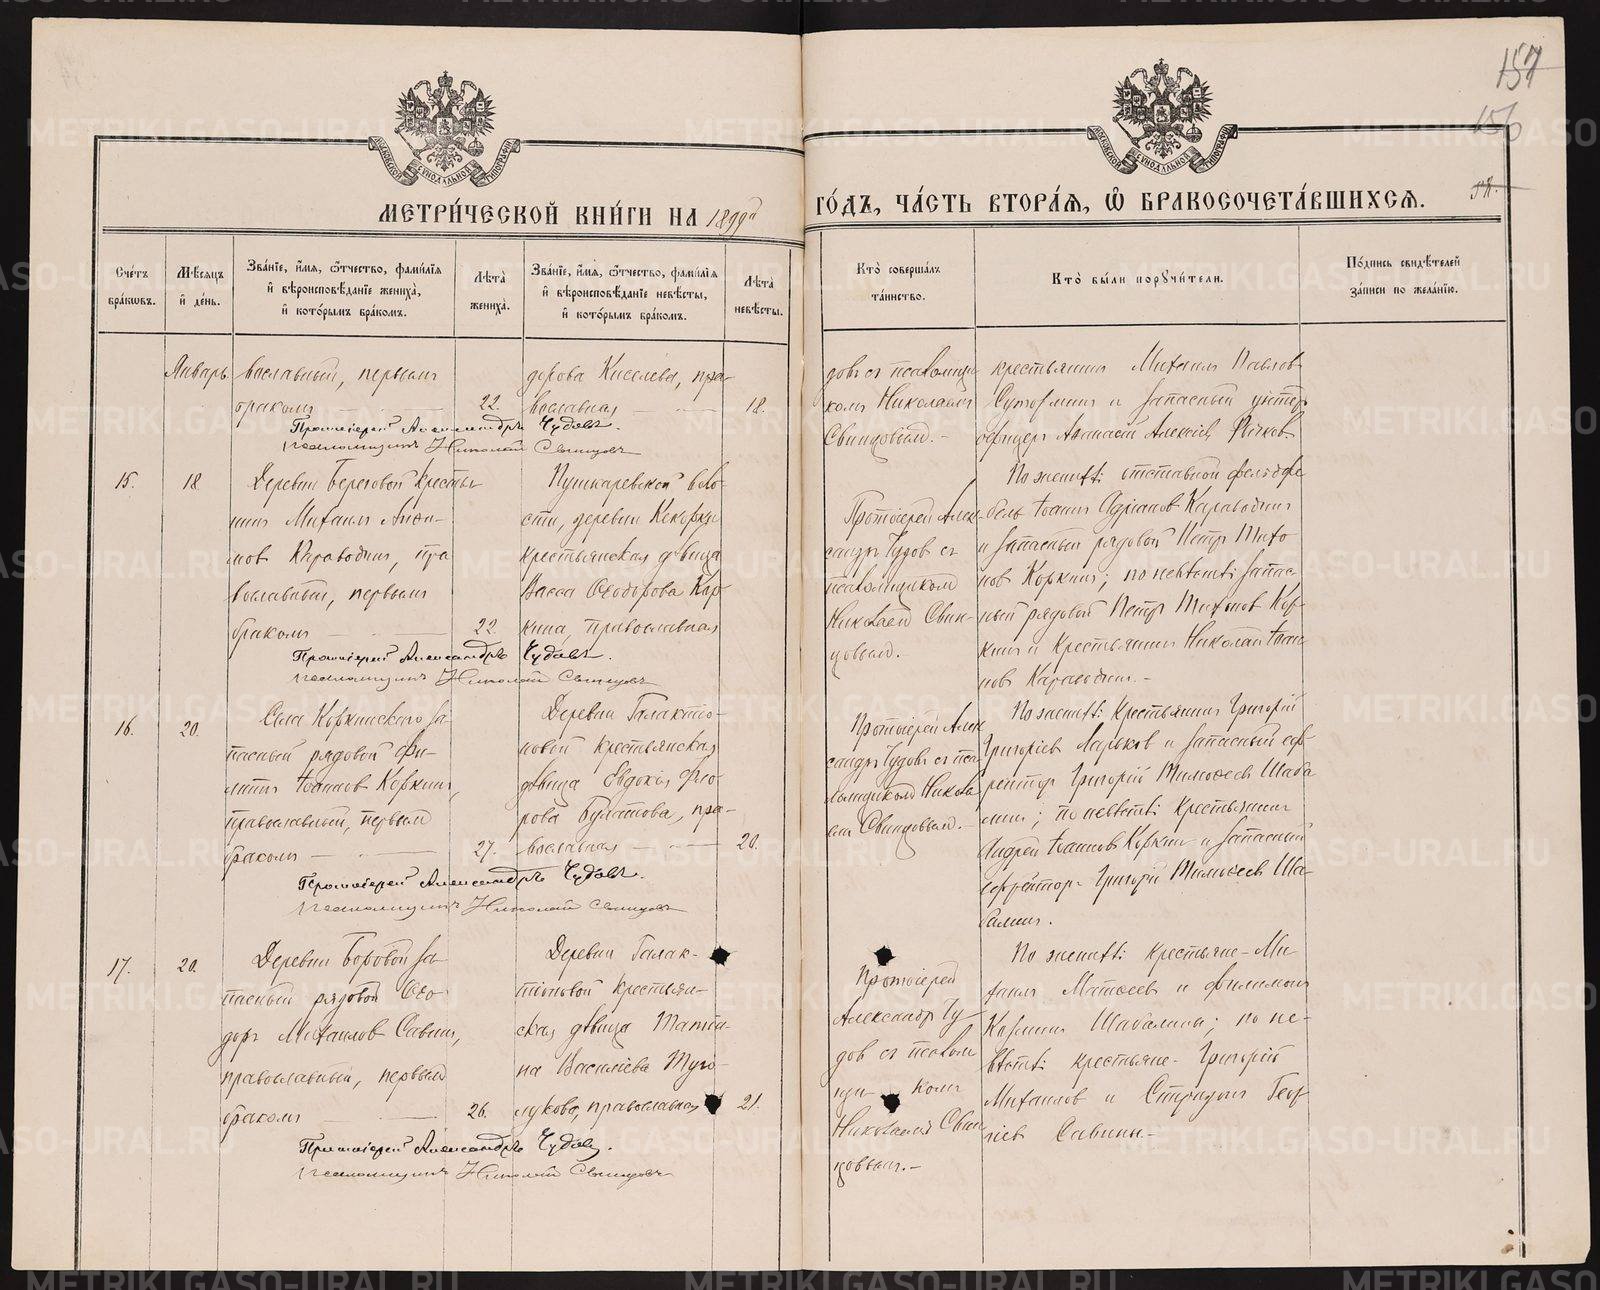 157
156
МЕТРИ́ЧЕСКОЙ КНИ́ГИ НА 1899й
ГО́ДЪ, ЧА́СТЬ ВТОРА́Ѧ, Ѽ БРАКОСОЧЕТА́ВШИХСѦ.
Сче́тъ бра́кѡвъ.
Мѣ́сѧцъ и҆ де́нь.
Зва́нїе, и҆́мѧ, ѻ҆́тчество, фами́лїѧ
и҆ вѣроисповѣ́данїе жениха̀,
и҆ кото́рымъ бра́комъ.
Лѣта̀ жениха̀.
Зва́нїе, и҆́мѧ, ѻ҆́тчество, фами́лїѧ
и҆ вѣроисповѣ́данїе невѣ́сты,
и҆ кото́рымъ бра́комъ.
Лѣта̀ невѣ́сты.
Кто̀ соверша́лъ та́инство.
Кто̀ бы́ли порꙋчи́тели.
По́дпись свидѣ́телей
за́писи по жела́нїю.
Январь.
вославный, первымъ
бракомъ
22.
дорова Киселева, пра-
вославная
18.
довъ съ псаломщи-
комъ Николаемъ
Свинцовымъ.-
крестьянинъ Михаилъ Павловъ
и запасный унтеръ
офицеръ Афанасій Алексѣевъ
Протоіерей Александръ Чудовъ.
псаломщикъ Николай Свинцовъ
15.
18
Деревни Береговой крестья-
нинъ Михаилъ
новъ Караводинъ, пра
вославный, первымъ
бракомъ
22.
Пушкаревской воло-
сти, деревни
крестьянская дѣвица
Васса Ѳеодорова Кор-
кина, православная
Протоіерей Алек-
сандръ Чудовъ съ
псаломщикомъ
Николаемъ Свин-
цовымъ.
По женихѣ: отставной фельдфе-
бель Іоаннъ Адріановъ Караводинъ
и запасный рядовой Петръ Тихо
новъ Коркинъ; по невѣстѣ: запас-
ный рядовой Петръ Тихоновъ Кор-
кинъ и крестьянинъ Николай Іоан-
новъ Караводинъ.-
Протоіерей Александръ Чудовъ.
псаломщикъ Николай Свинцовъ
16.
20.
Села Коркинскаго за-
пасный рядовой Фи-
липпъ Іоанновъ Коркинъ,
православный, первымъ
бракомъ
27.
Деревни Галактіо-
новой крестьянская
дѣвица Евдокія Фло-
рова Булатова, пра-
вославная
20.
Протоіерей Алек
сандръ Чудовъ съ пса-
ломщикомъ Никола-
емъ Свинцовымъ.-
По женихѣ: крестьянинъ Григорій
Григоріевъ Ларьковъ и запасный еф-
рейторъ Григорій Тимоѳеевъ Шаба
линъ; по невѣстѣ: крестьянинъ
Андрей Іоанновъ Коркинъ и запасный
ефрейторъ Григорій Тимоѳеевъ Ша-
балинъ.
Протоіерей Александръ Чудовъ.
псаломщикъ Николай Свинцовъ
17.
20.
Деревни Боровой за-
пасный рядовой Ѳео-
доръ Михаиловъ Савинъ,
православный, первымъ
бракомъ
26.
Деревни Галак-
тіоновой крестьян-
ская дѣвица Татіа-
на Василіева Туго-
лукова, православная
21.
Протоіерей
Александръ Чу
довъ съ псалом
щи- комъ
Николаемъ Свин
цовымъ.-
По женихѣ: крестьяне- Ми-
хаилъ Матѳеевъ и Филимонъ
Шабалины; по не-
вѣстѣ: крестьяне- Григорій
Михаиловъ и Спиридонъ Геор
гіевъ Савины.-
Протоіерей Александръ Чудовъ.
псаломщикъ Николай Свинцовъ
METRIKI.GASO-URAL.RU